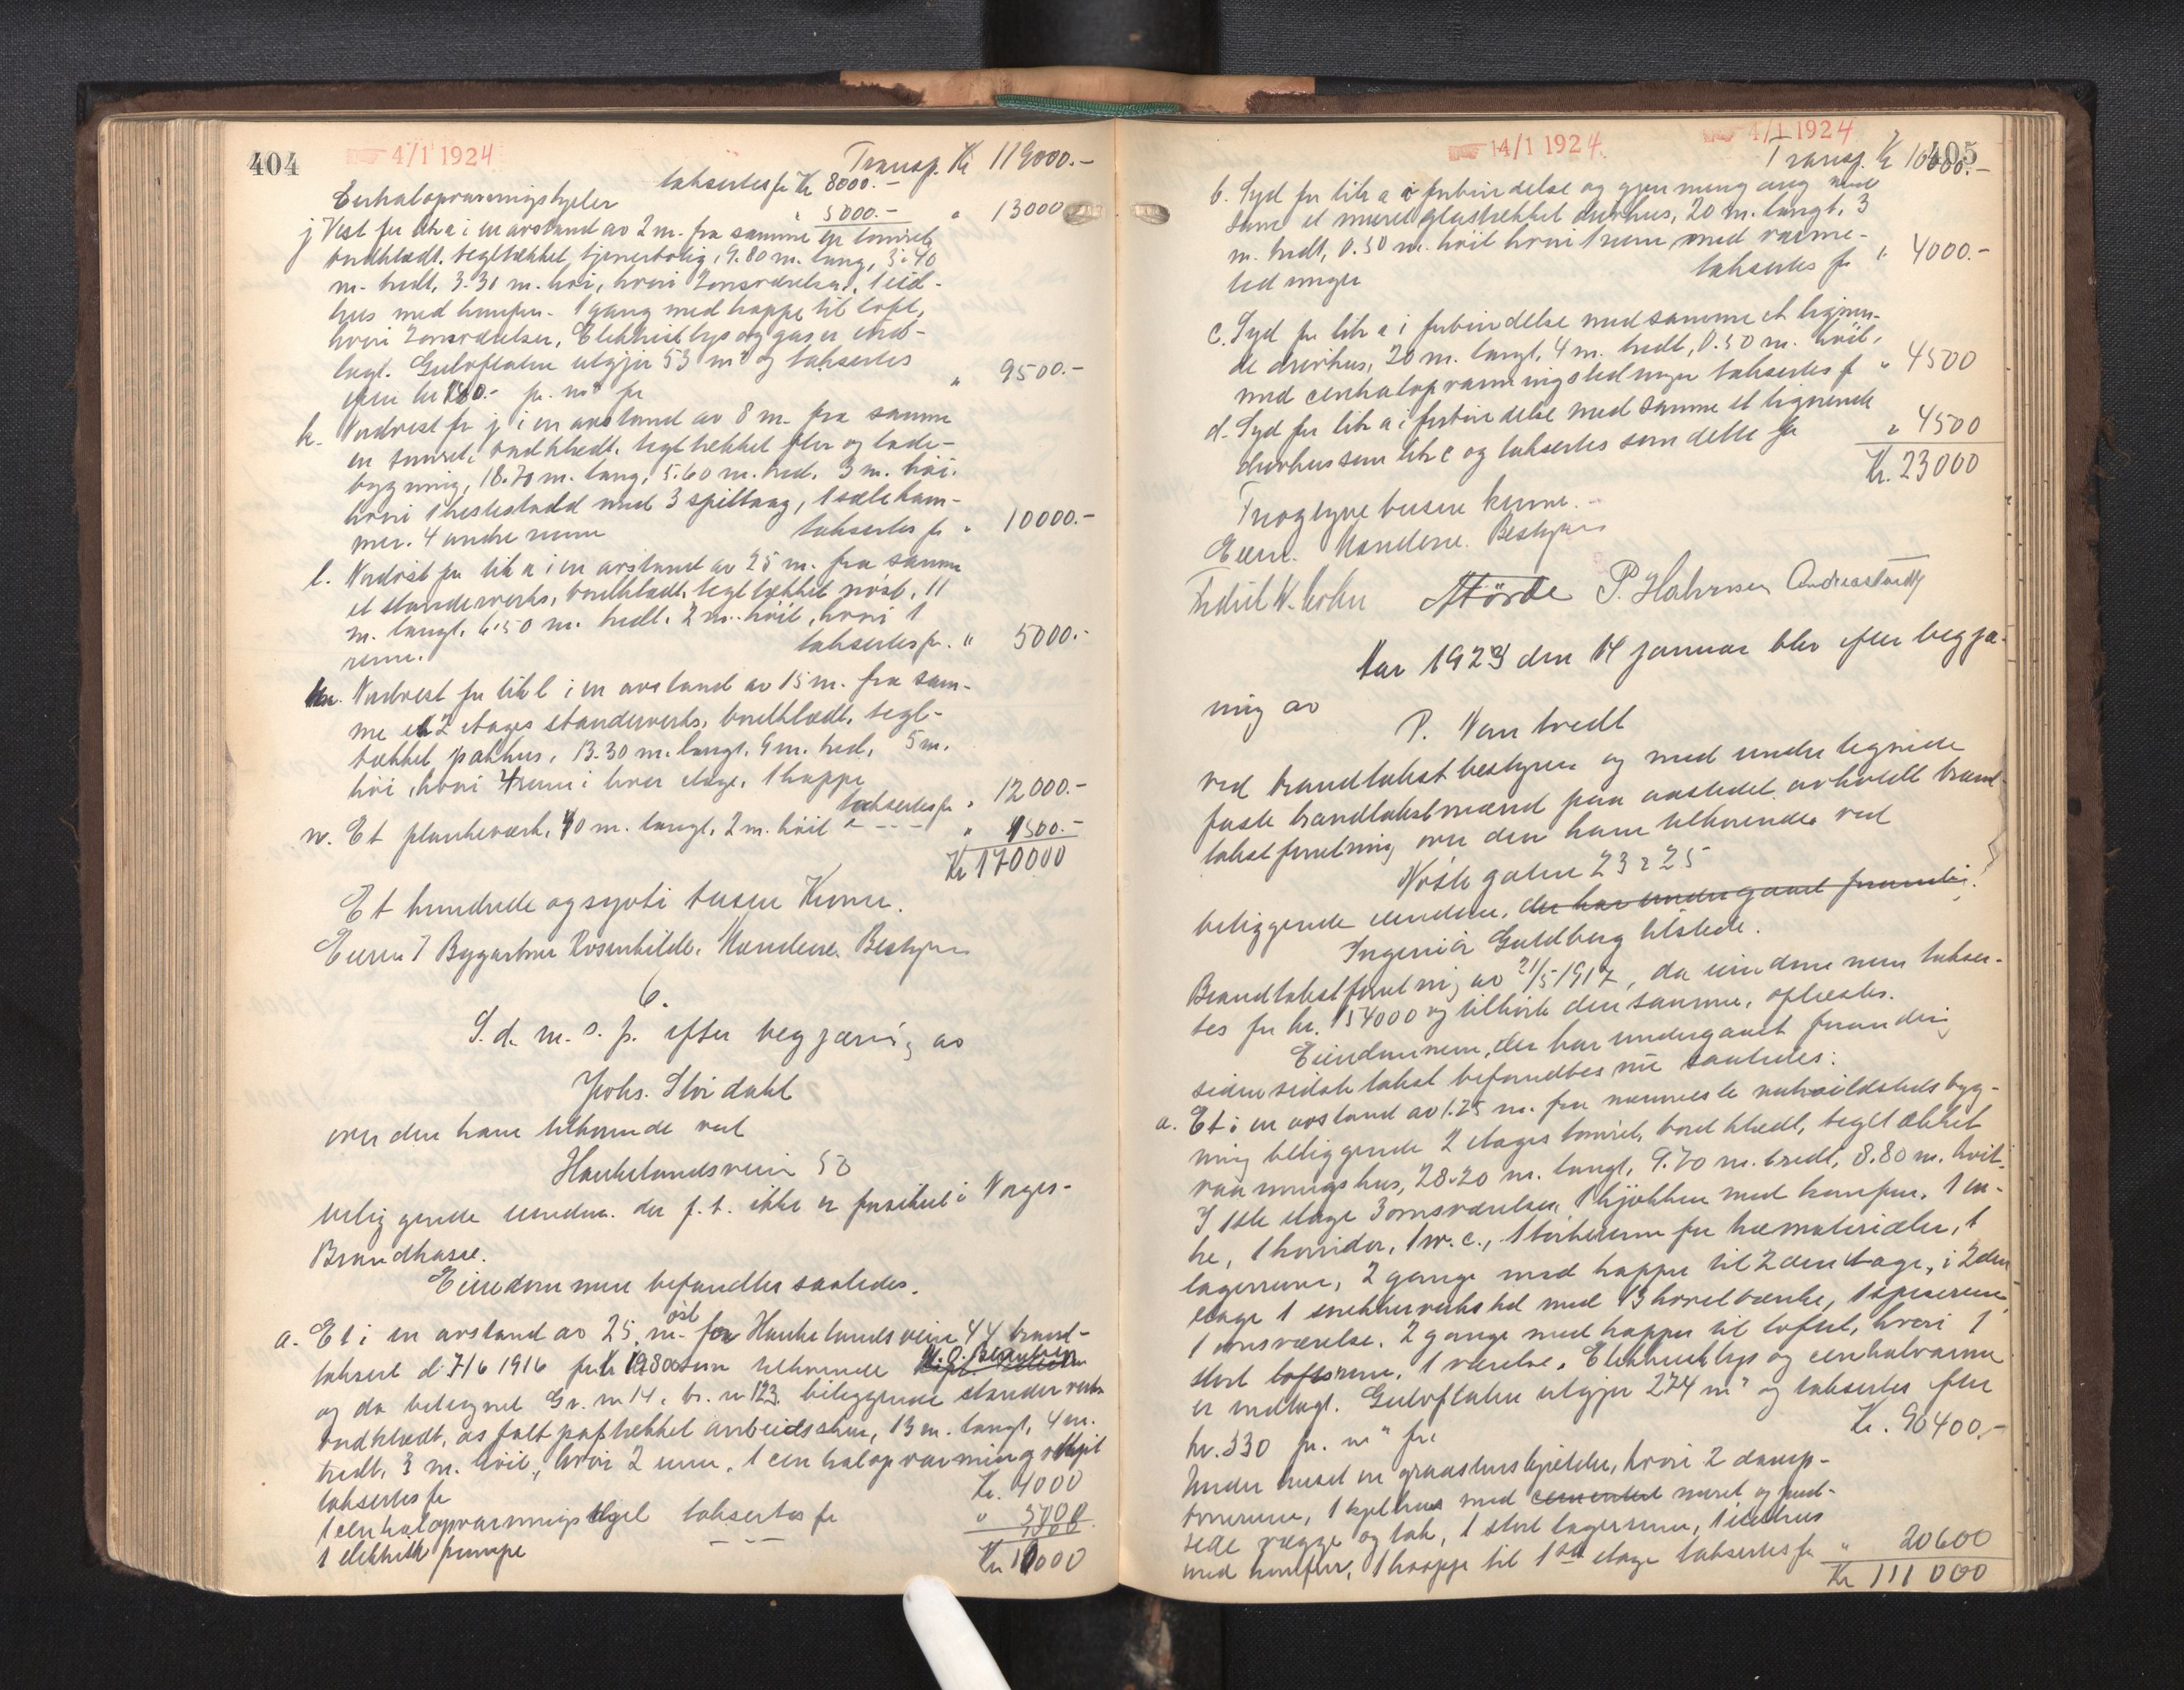 404
4/1 1924
Transp. Kr 119000.-
taksertes for Kr 8000.-
Centralopvarmingskjeler " 5000.- " 13000
j Vest for litr a i en avstand av 2 m. fra samme en tømret,
bordklædt, tegltækket tjenerbolig, 9.80 m. lang, 3.40
m. bredt, 3.30 m. høi, hvori 2 onsværelser, 1 ild-
hus med komfur. 1 gang med trappe til loft,
hvori 2 onsværelser, Elektrisk lys og gas er ind-
lagt. Gulvflaten utgjør 53 m² og taksertes
efter kr 180.- pr. m² for " 9500.-
k. Nordvest for j i en avstand av 8 m. fra samme
en tømret, bordklædt, tegltækket stor og lade-
bygning, 18.70 m. lang, 5.60 m. bred, 3 m. høi.
hvori 1 hestestald med 3 spiltaug, 1 sælekam-
mer. 4 andre rum taksertes for " 10000.-
l. Nordøst for litr a i en avstand av 25 m. fra samme
et standerverks, bordklædt, tegltækket nøst, 11
m. langt, 6.50 m. bredt, 2 m. høit, hvori 1
rum. taksertes for " 5000.-
m. Nordvest for litr l i en avstand av 15 m. fra sam-
me et 2 etages standerverks, bordklædt, tegl-
tækket pakhus, 13.30 m. langt, 9 m. bred, 5 m.
høi, hvori 4 rum i hver etage, 1 trappe
taksertes for " 12000.-
n. Et plankeværk, 40 m. langt, 2 m. høit " - - - " 1500.-
Kr 170000
Et hundrede og sytti tusen Kroner.
Eieren I Byggartner Rosenkilde. Mændene. Bestyrer
6.
S. d. m. s. p. efter begjæring av
Johs. Stordahl
over den ham tilhørende ved
Haukelandsveien 50
beliggende eiendom. der f. t. ikke er forsikret i Norges-
Brandkasse.
Eiendommen befandtes saaledes.
a. Et i en avstand av 25 m. øst for Haukelandsveien 44 brand-
taksert d. 7/6 1916 for kr 19800 som tilhørende
og da betegnet Gr. nr 14, br. nr 123 beliggende standerverks
bordklædt, asfalt paptækket arbeidshus, 13 m. langt, 4 m.
bredt, 3 m. høit, hvori 2 rum. 1 centralopvarmingskjel
taksertes for Kr. 4000
1 centralopvarmings kjel taksertes for " 5000
1 elektrisk pumpe - - -
Kr 10000
405
14/1 1924.
4/1 1924
Transp. Kr 10000.-
b. Syd for litr a i forbindelse og gjennemgang med
samme et muret glastækket drivhus, 20 m. langt, 3
m. bredt, 0.50 m. høit hvori 1 rum med varme-
ledninger taksertes for " 4000.-
c. Syd for litr a i forbindelse med samme et lignen-
de drivhus, 20 m. langt, 4 m. bredt, 0.50 m. høit,
med centralopvarmingsledninger taksertes f " 4500
d. Syd for litr a i forbindelse med samme et lignende
drivhus som litr c og taksertes som dette for " 4500
Kr. 23000
Tre og tyve tusen kroner.
Eieren. Mændene. Bestyrer
P. Halvorsen
Aar 1924 den 14 januar blev efter begjæ-
ring av
P. Namtvedt
ved brandtakstbestyrer og med undertegnede
faste brandtakstmænd paa aastedet avholdt brand-
takstforretning over den ham tilhørende ved
Nøste gaten 23 & 25
beliggende eiendom, der har undergaaet forandring.
Ingeniør Guldberg tilstede.
Brandtakstforretning av 21/5 1917, da eiendommen takser-
tes for kr. 154000 og tilhørte den samme, oplæstes.
Eiendommen, der har undergaaet forandring
siden sidste takst befandtes nu saaledes:
a. Et i en avstand av 1.25 m. fra nærmeste naboildstedsbyg-
ning beliggende 2 etages tømret, bordklædt, tegltækket
vaaningshus, 28.20 m. langt, 9.70 m. bredt, 8.80 m. høit.
I 1ste etage 3 onsværelser, 1 kjøkken med komfur, 1 en-
tre, 1 korridor, 1 w. c., 1 tørkerum for træmaterialer, 1
lagerrum, 2 gange med trapper til 2den etage, i 2den
etage 1 snekkerverksted med 13 høvelbænke, 1 spiserum,
1 onsværelse. 2 gange med trapper til loftet, hvori 1
stort loftsrum, 1 værelse. Elektrisk lys og centralvarme
er indlagt. Gulvflaten utgjør 274 m² og taksertes efter
kr. 330 pr. m² for Kr. 90400.-
Under huset en graastenskjelder, hvori 2 damp-
tørrerum, 1 kjelhus med cementert muret og pud-
sede vægge og tak, 1 stort lagerrum, 1 ildhus
med komfur, 1 trappe til 1ste etage taksertes for " 20600
Kr 111000